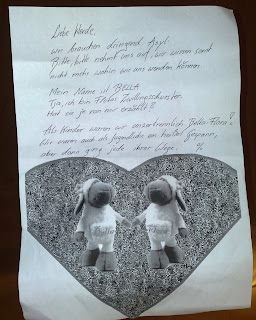 Liebe Herde,
wir brauchen dringend Asyl.
Bitte, bitte nehmt uns auf, wir wissen sonst
nicht mehr wohin wir uns wenden können.
Mein Name ist BELLA
Tja, ich bin Floras Zwillingsschwester.
Hat sie je von mir erzählt?
Als Kinder waren wir unzertrennlich "Bella-Flora".
Wir waren auch als Jugendliche ein Gespann,
aber dann ging jede ihrer Wege. %